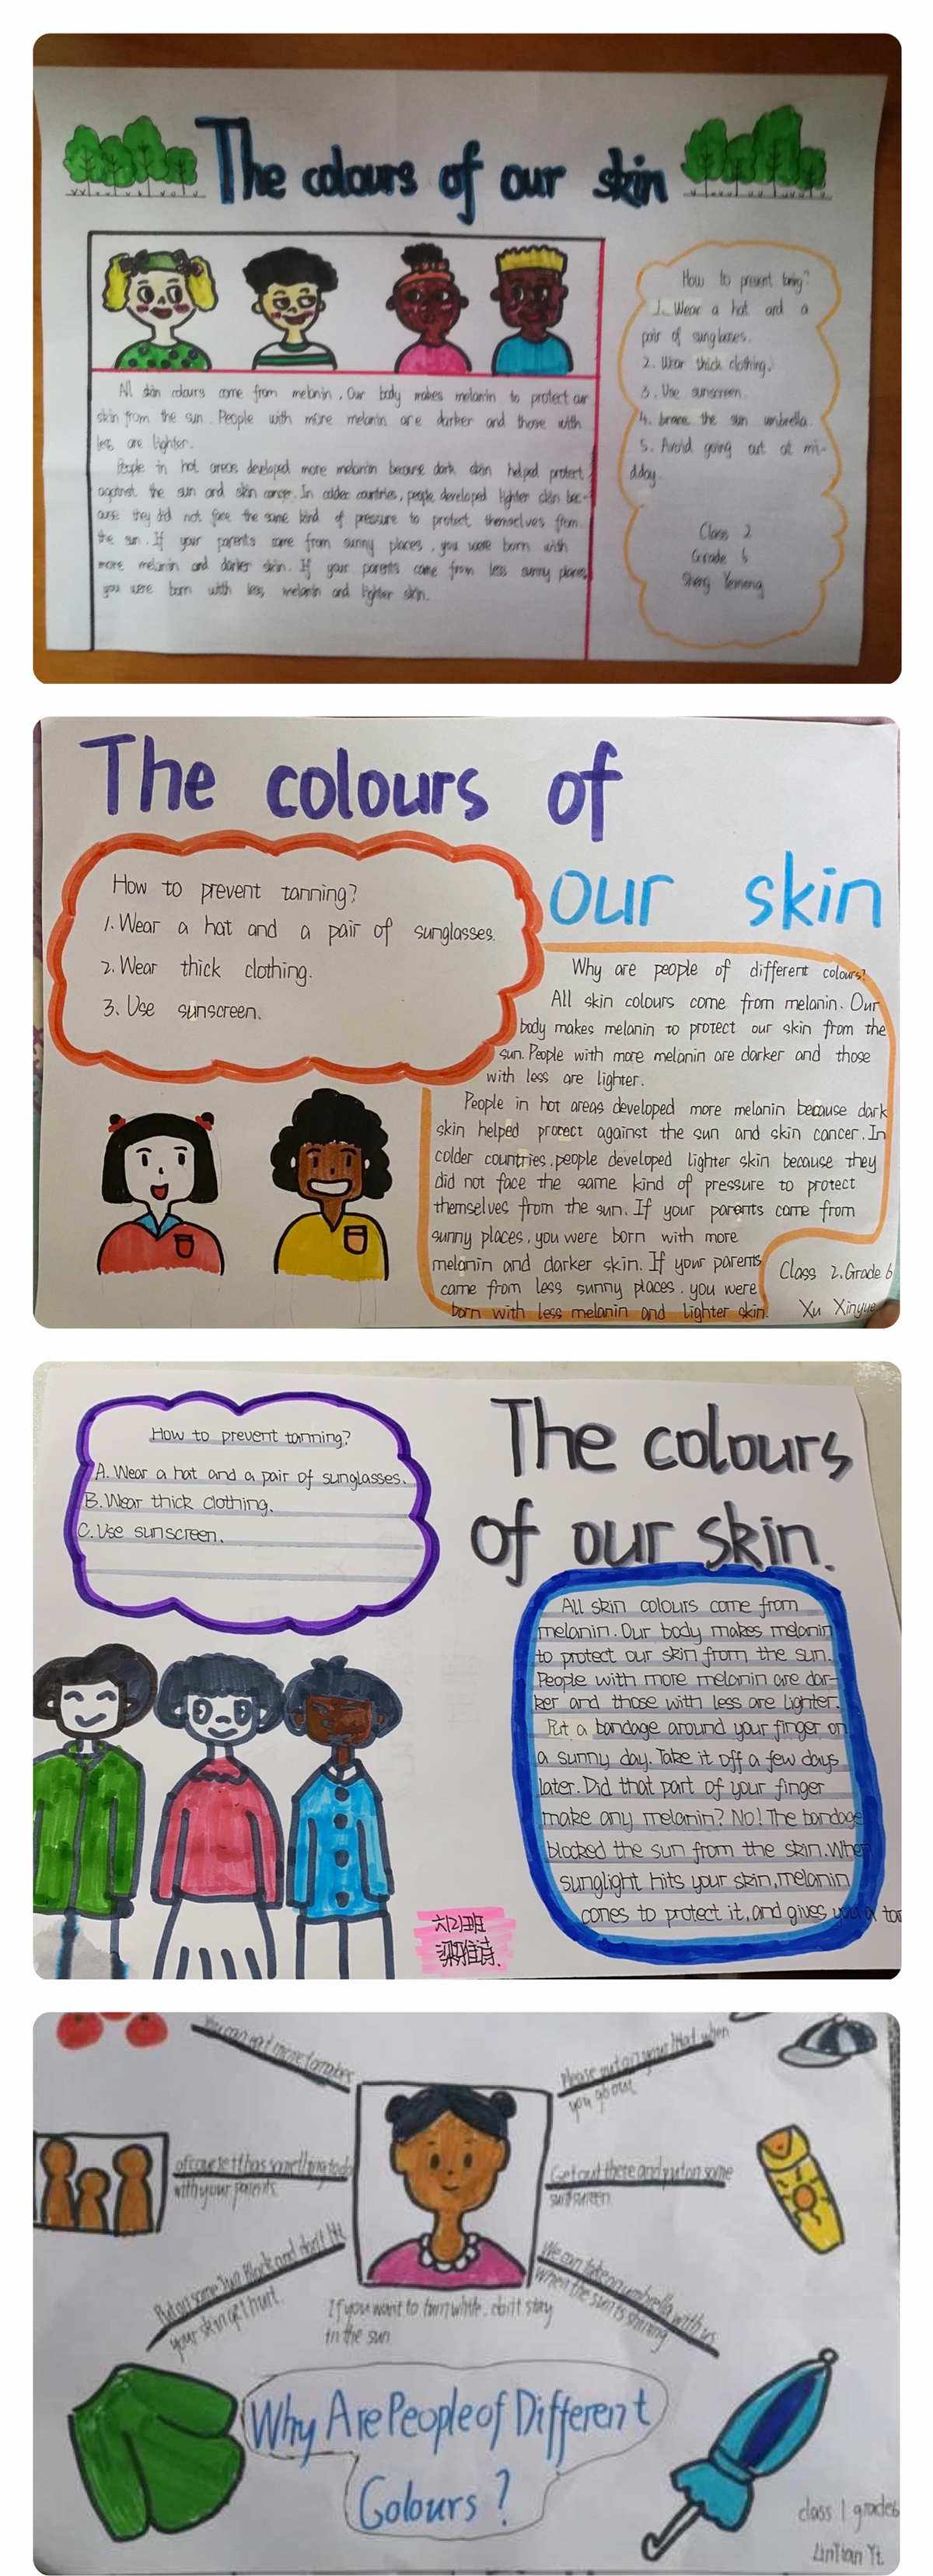 The colours of our skin
All skin colours come from melanin. Our body makes melanin to protect our
skin from the sun. People with more melanin are darker and those with
less are lighter.
People in hot areas developed more melanin because dark skin helped protect
against the sun and skin cancer. In colder countries, people developed lighter skin bec-
ause they did not face the same kind of pressure to protect themselves from
the sun. If your parents came from sunny places, you were born with
more melanin and darker skin. If your parents came from less sunny places,
you were born with less melanin and lighter skin.
How to prevent taning?
1. Wear a hat and a
pair of sunglasses.
2. Wear thick clothing.
3. Use sunscreen.
4. the sun umbrella.
5. Avoid going out at mi-
dday.
Class 2
Grade 6
Sheng
The colours of
our skin
How to prevent tanning?
1. Wear a hat and a pair of sunglasses.
2. Wear thick clothing.
3. Use sunscreen.
Why are people of different colours?
All skin colours come from melanin. Our
body makes melanin to protect our skin from the
sun. People with more melanin are darker and those
with less are lighter.
People in hot areas developed more melanin because dark
skin helped protect against the sun and skin cancer. In
colder countries, people developed lighter skin because they
did not face the same kind of pressure to protect
themselves from the sun. If your parents came from
sunny places, you were born with more
melanin and darker skin. If your parents
came from less sunny places, you were
born with less melanin and lighter skin.
Class 2. Grade 6
Xu Xinyue
How to prevent tanning?
A. Wear a hat and a pair of sunglasses.
B. Wear thick clothing.
C. Use sunscreen.
The colours
of our skin.
All skin colours come from
melanin. Our body makes melanin
to protect our skin from the sun.
People with more melanin are dar-
ker and those with less are lighter.
Put a bandage around your finger on
a sunny day. Take it off a few days
later. Did that part of your finger
make any melanin? No! The bandage
blocked the sun from the skin. When
sunlight hits your skin, melanin
comes to protect it, and gives you a tan
六(2)班
梁雅诗
You can eat more tomatoes
Please put on your hat when
you go out
of course it has something to do
with your parents
Get out there and put on some
sunscreen
Put on some Sun Block and don't let
your skin get hurt
We can take an umbrella with us
when the sun is shining
If you want to turn white, don't stay
in the sun
Why Are People of Different
Colours?
class 1 grade6
LinTian Yt